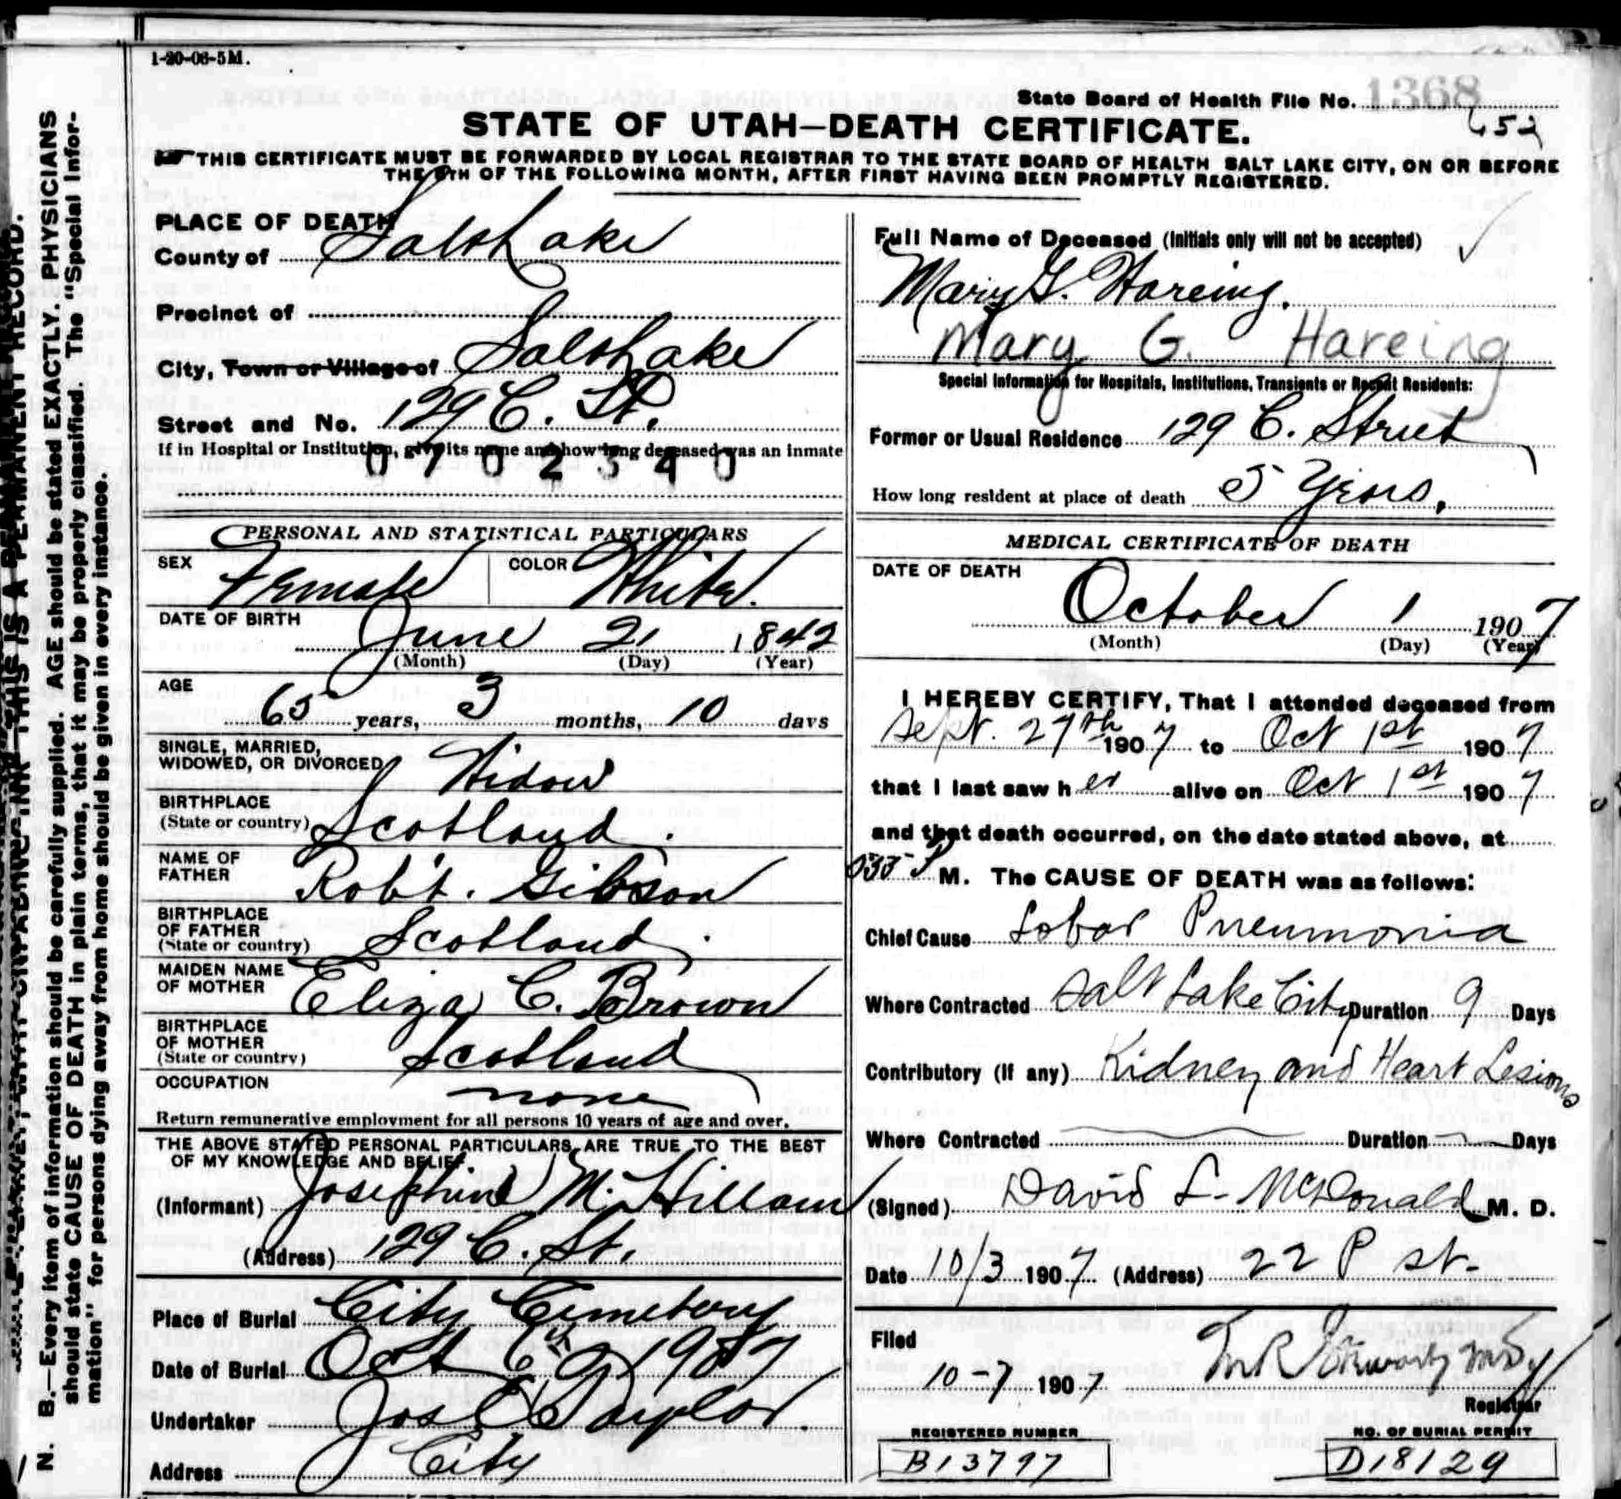 1-20-06-5M.
State Board of Health File No. 1368
652
STATE OF UTAH—DEATH CERTIFICATE.
THIS CERTIFICATE MUST BE FORWARDED BY LOCAL REGISTRAR TO THE STATE BOARD OF HEALTH SALT LAKE CITY, ON OR BEFORE
THE 5TH OF THE FOLLOWING MONTH, AFTER FIRST HAVING BEEN PROMPTLY REGISTERED.
N. B.—Every item of information should be carefully supplied. AGE should be stated EXACTLY. PHYSICIANS
should state CAUSE OF DEATH in plain terms, that it may be properly classified. The "Special Infor-
mation" for persons dying away from home should be given in every instance.
THIS IS A PERMANENT RECORD.
PLACE OF DEATH
County of Salt Lake
Precinct of
City, Town or Village of Salt Lake
Street and No. 129 C. St.
If in Hospital or Institution, give its name and how long deceased was an inmate
0 7 0 2 3 4 0
PERSONAL AND STATISTICAL PARTICULARS
SEX Female COLOR White.
DATE OF BIRTH June 21 1842
(Month) (Day) (Year)
AGE
65 years, 3 months, 10 days
SINGLE, MARRIED,
WIDOWED, OR DIVORCED Widow
BIRTHPLACE
(State or country) Scotland.
NAME OF
FATHER Rob't. Gibson
BIRTHPLACE
OF FATHER
(State or country) Scotland.
MAIDEN NAME
OF MOTHER Eliza C. Brown
BIRTHPLACE
OF MOTHER
(State or country) Scotland
OCCUPATION none
Return remunerative employment for all persons 10 years of age and over.
THE ABOVE STATED PERSONAL PARTICULARS ARE TRUE TO THE BEST
OF MY KNOWLEDGE AND BELIEF.
(Informant) Josephine M. Hillam
(Address) 129 C. St.
Place of Burial City Cemetery
Date of Burial Oct 6th 1907
Undertaker Jos E Taylor
Address City
Full Name of Deceased (Initials only will not be accepted)
Mary G. Hareing.
Mary G. Hareing
Special Information for Hospitals, Institutions, Transients or Recent Residents:
Former or Usual Residence 129 C. Street
How long resident at place of death 5 Years.
MEDICAL CERTIFICATE OF DEATH
DATE OF DEATH
October 1 1907
(Month) (Day) (Year)
I HEREBY CERTIFY, That I attended deceased from
Sept. 27th 1907 to Oct 1st 1907
that I last saw her alive on Oct 1st 1907
and that death occurred, on the date stated above, at
P M. The CAUSE OF DEATH was as follows:
Chief Cause Lobar Pneumonia
Where Contracted Salt Lake City Duration 9 Days
Contributory (If any) Kidney and Heart Lesions
Where Contracted Duration Days
(Signed) David L. McDonald M. D.
Date 10/3 1907 (Address) 22 P st-
Filed
10-7 1907
Registrar
REGISTERED NUMBER
B13797
NO. OF BURIAL PERMIT
D18129